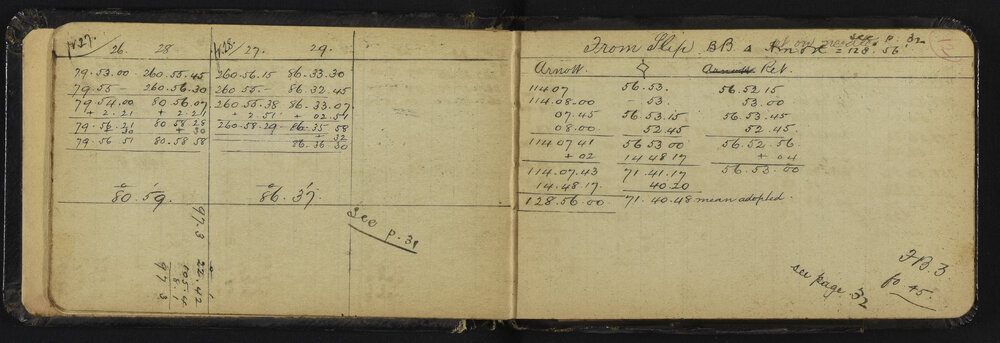 26. 28
79.53.00 260.55.45
79.55 — 260.56.30
79.54.00 80.56.07
+ 2.21 + 2.21
79.56.21 80 58 28
30 + 30
79.56 51 80.58 58
80.59.
97.3
22.42
105.4
8.1
97 3
27. 29.
260.56.15 86.33.30
260 55.— 86.32.45
260 55.38 86.33.07
+ 2.51 + 02.51
260.58.29 86.35 58
+ 32
86.36 30
86.37.
See p. 31
From Slip BB Δ
see p. 32
= 128.56
12
Arnott. Ret.
114 07 56.53. 56.52 15
114.08.00 — 53. 53.00
07.45 56.53.15 56.53.45
08.00 52.45 52.45.
114 07 41 56.53 00 56.52.56.
+ 02 14 48 17 + 04
114.07.43 71.41.17 56.53.00
14.48 17. 40 20
128.56.00 71.40.48 mean adopted.
see page 32
FB. 3
fo 45.